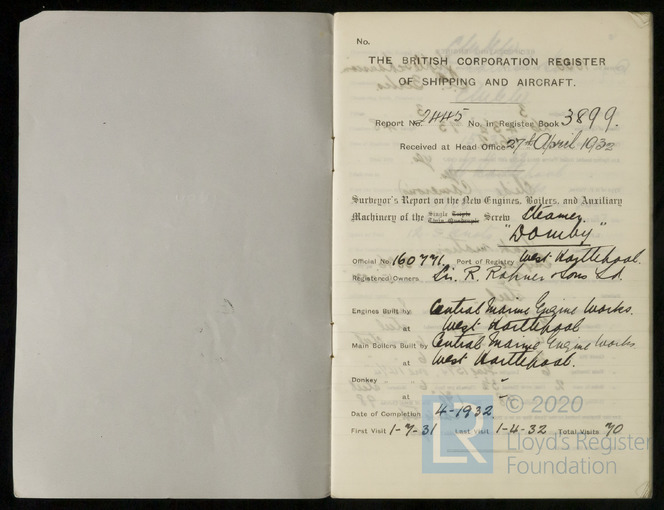 No.
THE BRITISH CORPORATION REGISTER
OF SHIPPING AND AIRCRAFT.
Report No. 2445 No. in Register Book 3899.
Received at Head Office 27th April 1932
Surveyor's Report on the New Engines, Boilers, and Auxiliary
Machinery of the Single Triple Twin Quadruple Screw Steamer
"Domby"
Official No. 160771. Port of Registry West Hartlepool.
Registered Owners Sir. R. Ropner & Sons Ld.
Engines Built by Central Marine Engine Works.
at West Hartlepool
Main Boilers Built by Central Marine Engine Works
at West Hartlepool.
Donkey " -
at -
Date of Completion 4-1932.
First Visit 1-7-31 Last Visit 1-4-32 Total Visits 70
LR © 2020
Lloyd's Register
Foundation